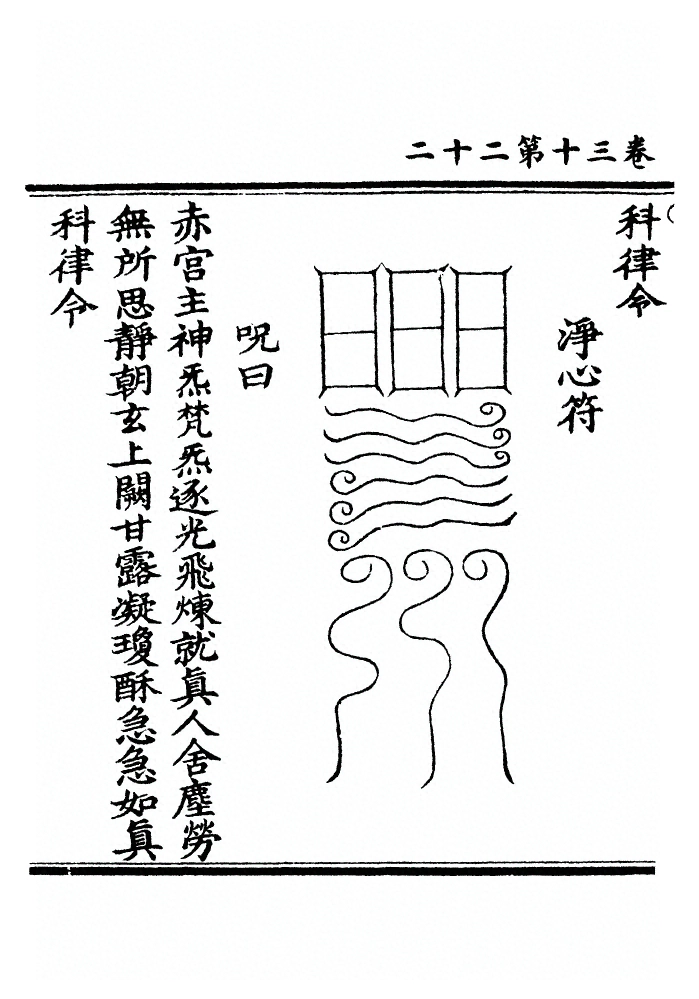 卷三十第二十二
科律令
淨心符
呪曰
赤宫主神炁梵炁逐光飛煉就眞人舍塵勞
無所思靜朝玄上闕甘露凝瓊酥急急如眞
科律令